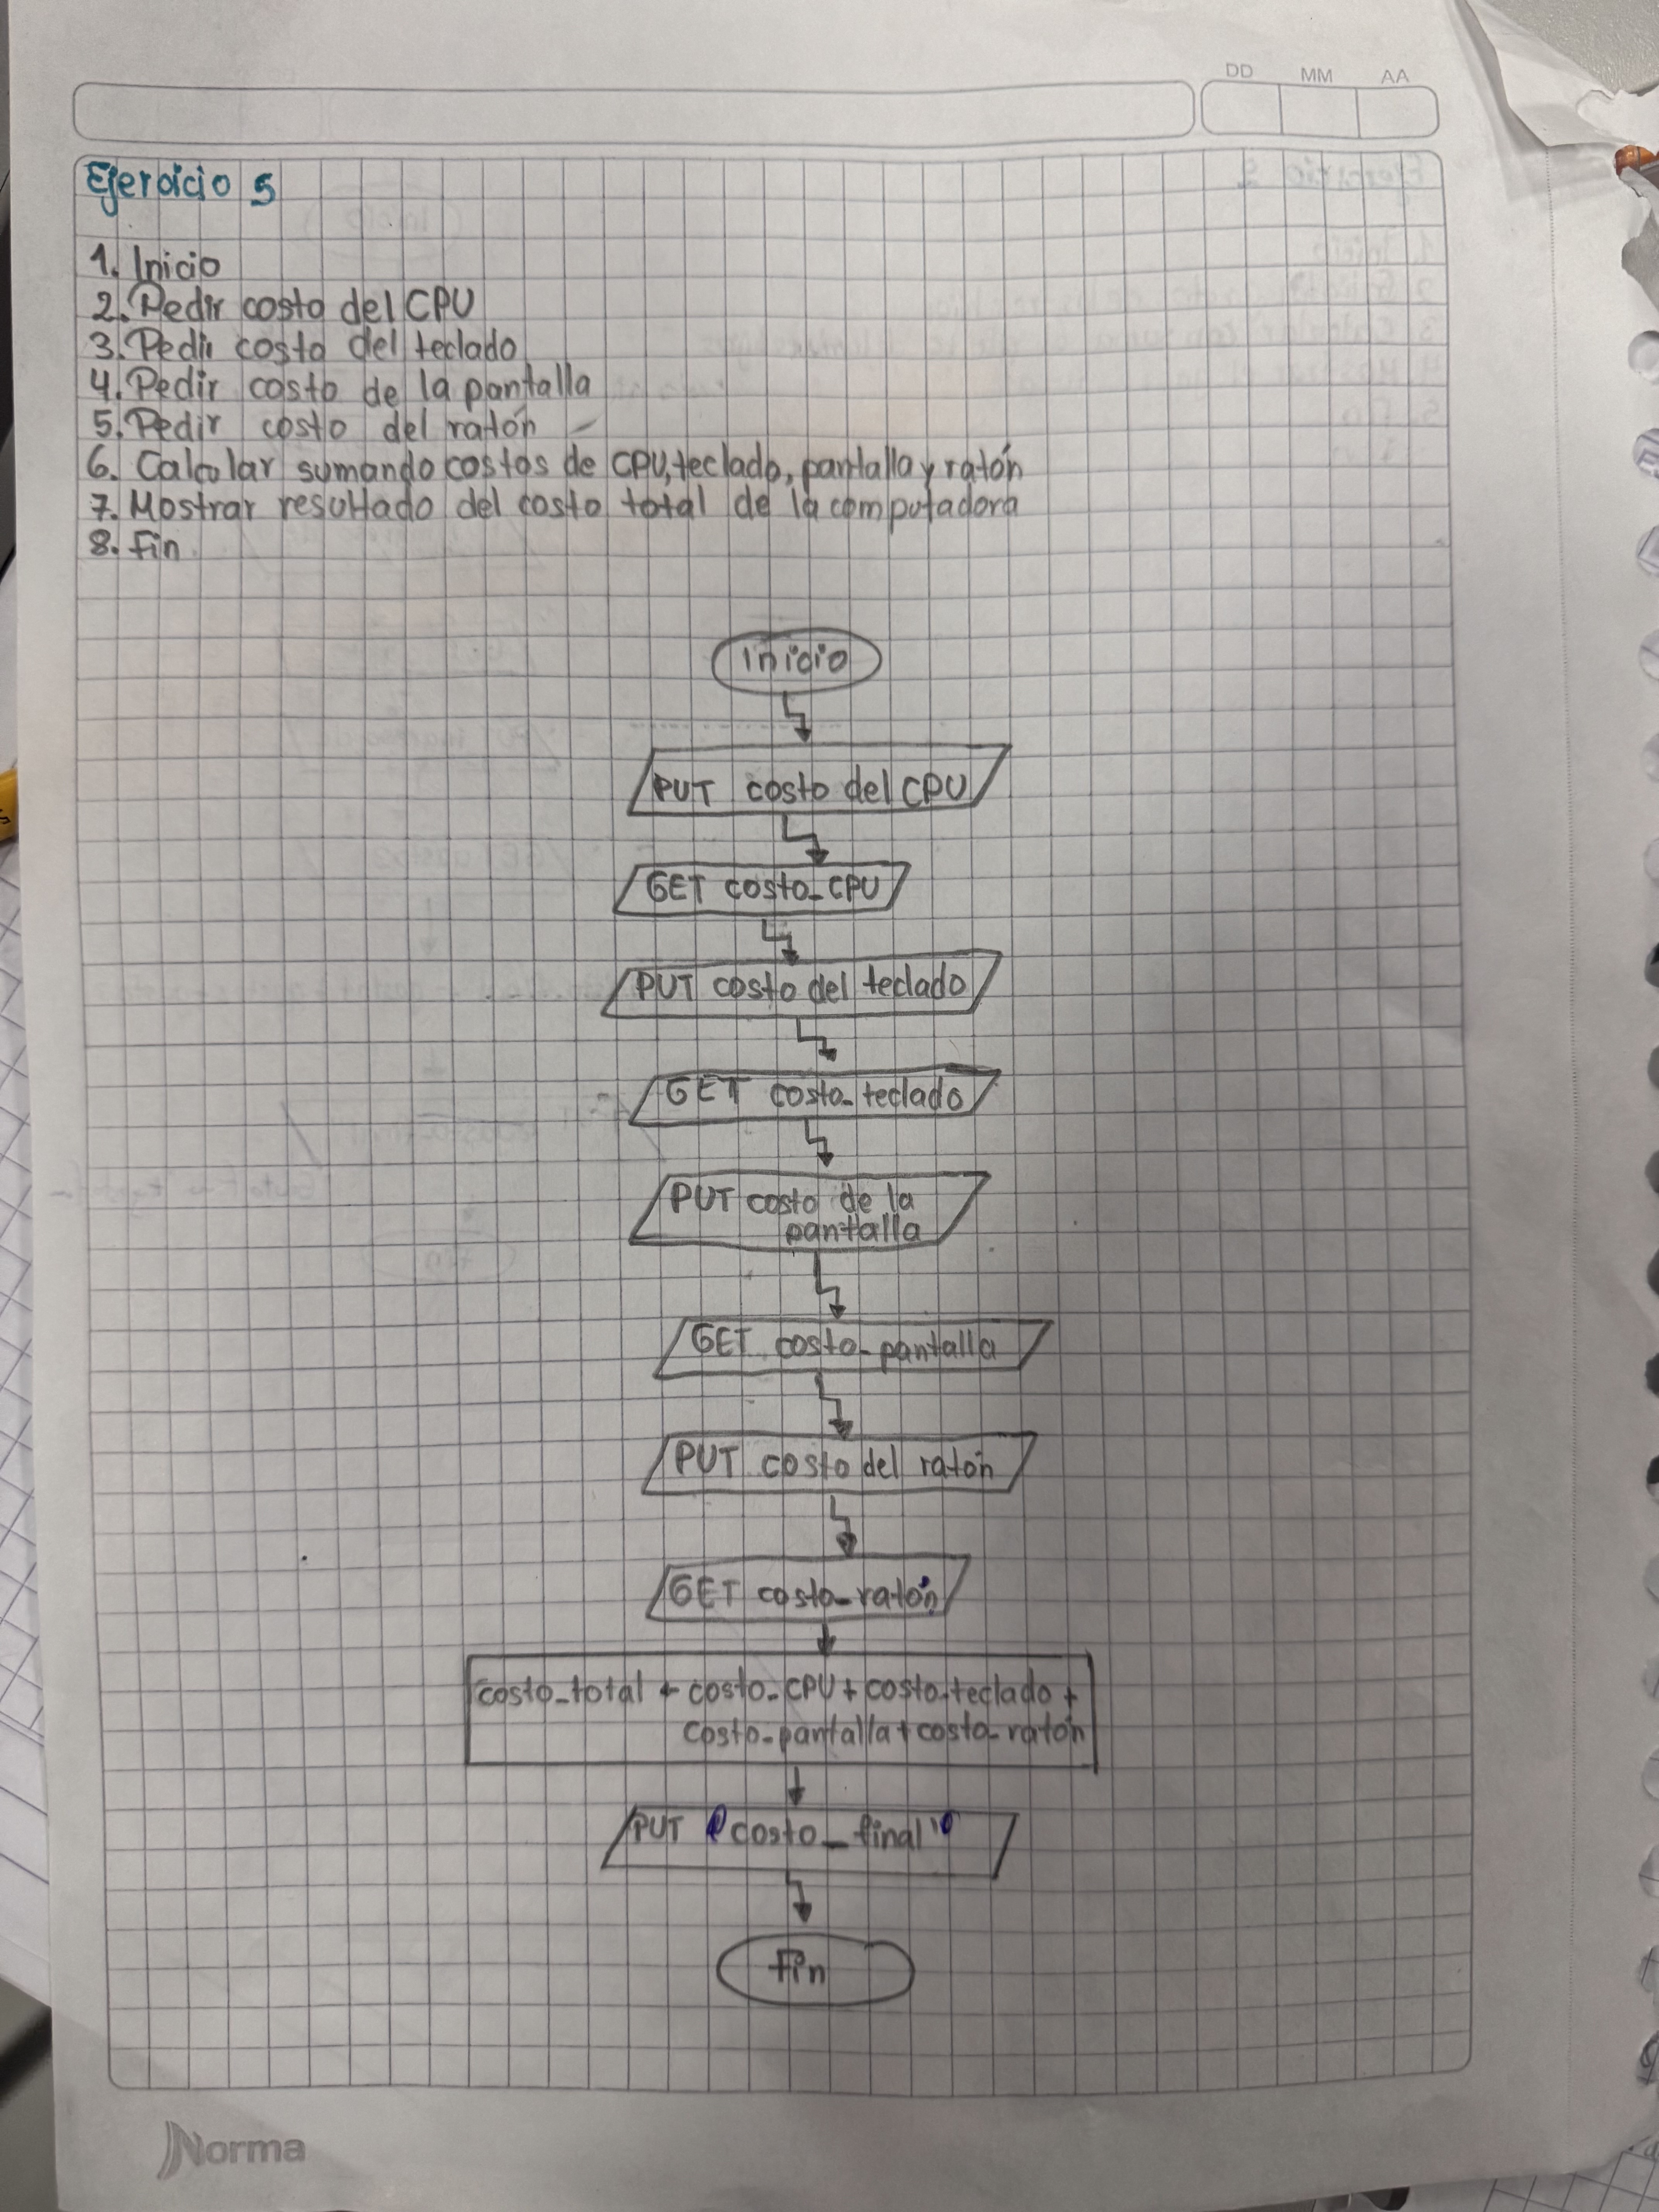 DD MM AA
Ejercicio 5
1. Inicio
2. Pedir costo del CPU
3. Pedir costo del teclado
4. Pedir costo de la pantalla
5. Pedir costo del ratón
6. Calcular sumando costos de CPU, teclado, pantalla y ratón
7. Mostrar resultado del costo total de la computadora
8. Fin
Inicio
PUT costo del CPU
GET costo_CPU
PUT costo del teclado
GET costo_teclado
PUT costo de la
pantalla
GET costo_pantalla
PUT costo del ratón
GET costo_ratón
costo_total ← costo_CPU + costo_teclado +
costo_pantalla + costo_ratón
PUT "costo_final"
Fin
Norma